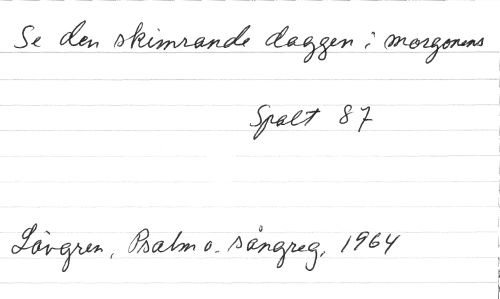 Se den skimrande daggen i morgonens
Spalt 87
Lövgren, Psalm o. sångreg, 1964